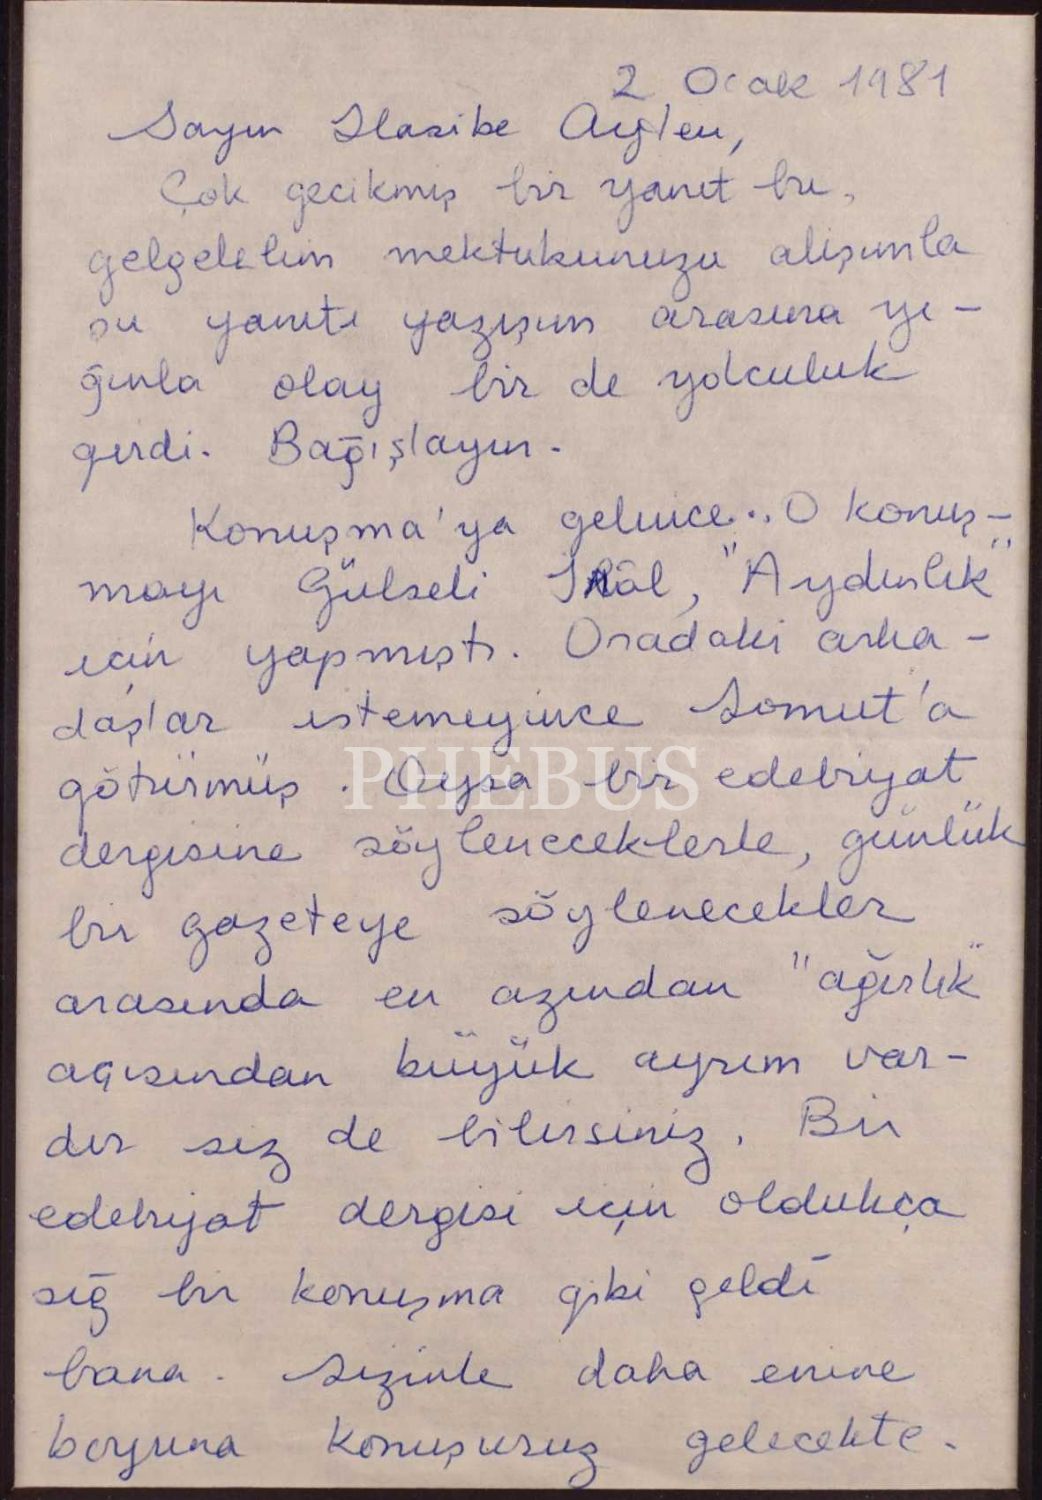 2 Ocak 1981
Sayın Hasibe Ayten,
Çok gecikmiş bir yanıt bu,
gelgelelim mektubunuzu alışımla
bu yanıtı yazışım arasına yı-
ğınla olay bir de yolculuk
girdi. Bağışlayın.
Konuşma'ya gelince... O konuş-
mayı Gülseli İnal, "Aydınlık"
için yapmıştı. Oradaki arka-
daşlar istemeyince Somut'a
götürmüş. Oysa bir edebiyat
PHEBUS
dergisine söyleneceklerle, günlük
bir gazeteye söylenecekler
arasında en azından "ağırlık"
açısından büyük ayrım var-
dır siz de bilirsiniz. Bir
edebiyat dergisi için oldukça
sığ bir konuşma gibi geldi
bana. Sizinle daha enine
boyuna konuşuruz gelecekte.